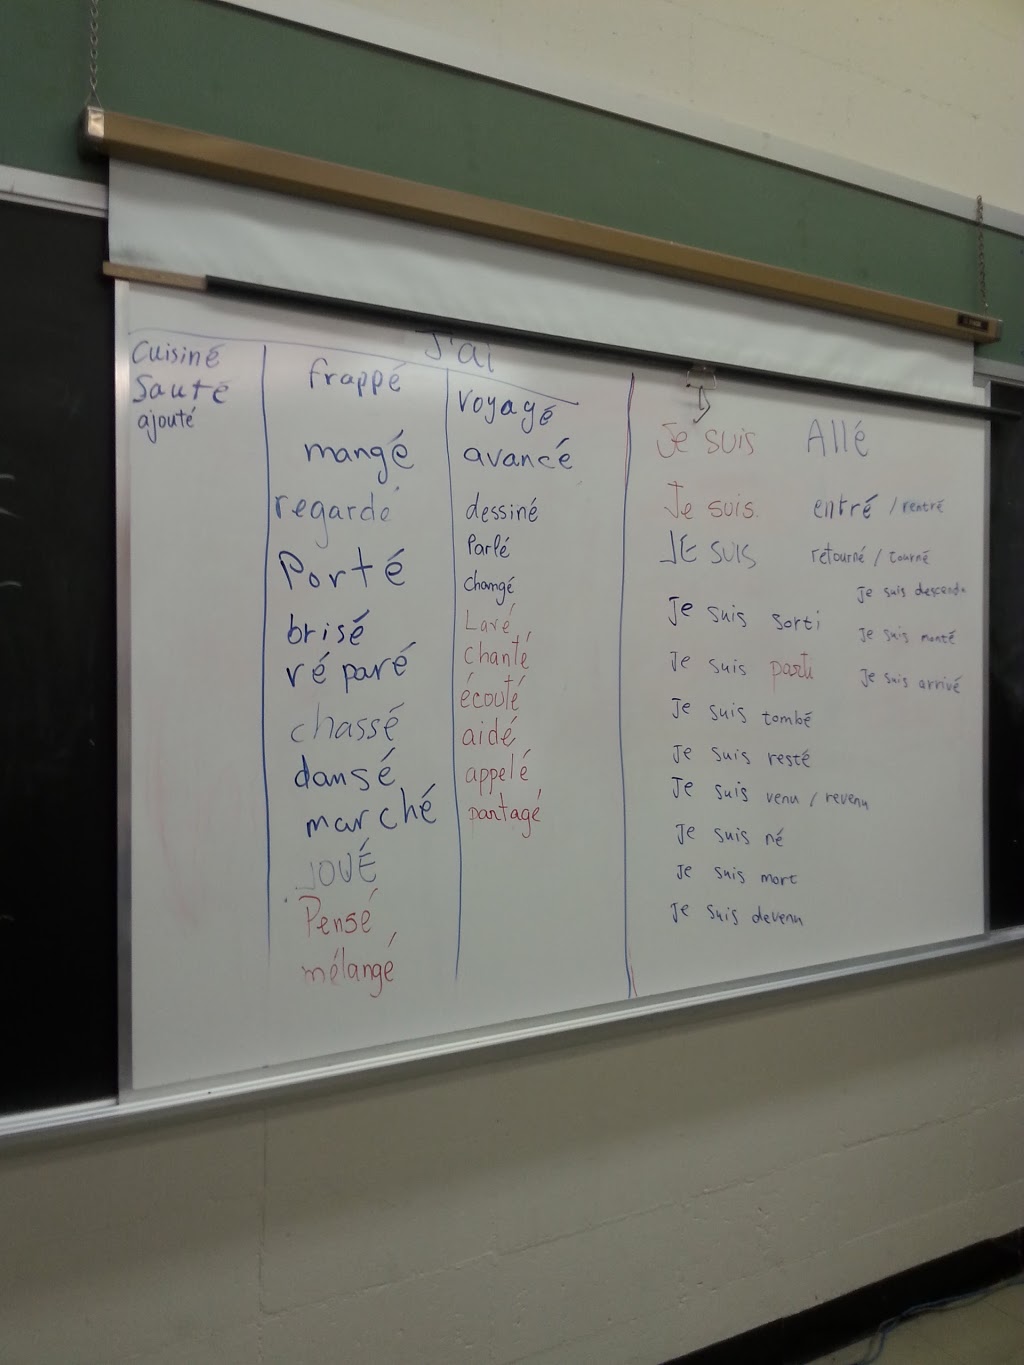 J'ai
Cuisiné
Sauté
ajouté
frappé
mangé
regardé
Porté
brisé
réparé
chassé
dansé
marché
JOUÉ
Pensé
mélangé
voyagé
avancé
dessiné
Parlé
changé
Lavé
chanté
écouté
aidé
appelé
partagé
Je suis Allé
Je suis entré / rentré
JE SUIS retourné / tourné
Je suis descendu
Je suis sorti
Je suis monté
Je suis parti
Je suis arrivé
Je suis tombé
Je suis resté
Je suis venu / revenu
Je suis né
Je suis mort
Je suis devenu